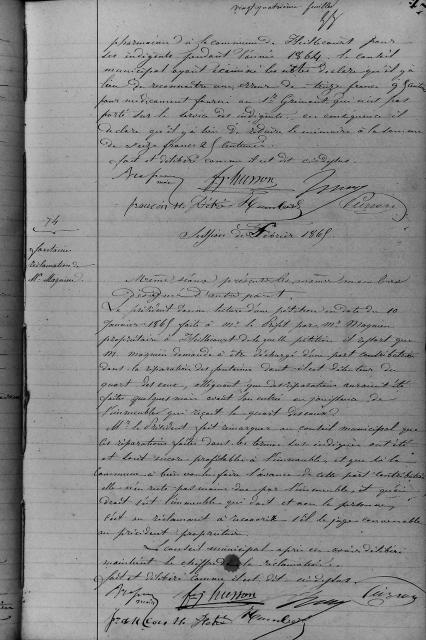 vingt quatrième feuillet
pharmacien à la commune de Heillecourt pour
les indigents pendant l'année 1864. Le conseil
municipal ayant examiné les notes déclare qu'il y a
lieu de reconnaître une erreur de treize francs 95 centimes
pour médicament fourni au Sr qui n'est pas
porté sur la service des indigents, en conséquence il
déclare qu'il y a lieu de réduire le mémoire à la somme
de seize francs 25 centimes.
fait et délibéré comme il est dit ci-dessus.
Husson
françois
74
Session de Février 1865
fontaine
réclamation de
Mr Magnien
Même séance présents les mêmes membres
Désignés d'autre part.
Le président donne lecture d'une pétition en date du 10
Janvier 1865 faite à Mr le Préfet par Mr Magnien
propriétaire à Heillecourt de laquelle pétition il ressort que
M. Magnien demande à être déchargé d'une part contributive
dans la réparation des fontaines dont il est du
quart des eaux, alléguant que ces réparations auraient été
faites quelques mois avant son entrée en jouissance de
l'immeuble qui reçoit le quart des eaux.
Mr le Président fait remarquer au conseil municipal que
les réparations faites dans les termes indiqués ont été
et sont encore profitables à l'immeuble, et que si la
commune a bien voulu faire l'avance de cette part contributive
elle n'en reste pas moins due par l'immeuble, et qu'en
droit c'est l'immeuble qui doit et non la personne,
sauf au réclamant à s'il le juge convenable
au précédent propriétaire.
Le conseil municipal après en avoir délibéré
maintient le chiffre de la réclamation.
fait et délibéré comme il est dit ci-dessus.
Husson
francois